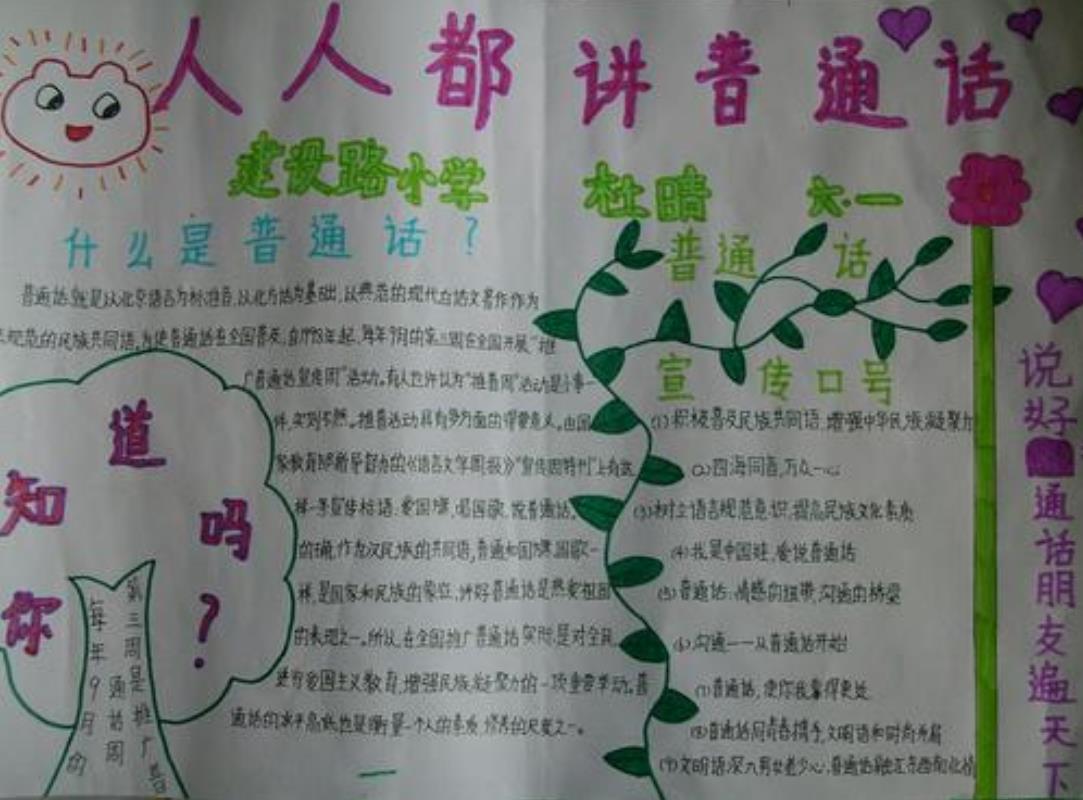 人人都讲普通话
建设路小学 杜晴 六一
什么是普通话?
普通话就是以北京语言为标准音,以北方话为基础,以典范的现代白话文著作作为
规范的民族共同语,为使普通话在全国普及,自1998年起,每年9月的第三周在全国开展"推
广普通话宣传周"活动。有人也许认为"推普周"活动是小事一
件,实则不然。推普活动具有多方面的得重意义。由国
家教育部所领导督办的《语言文字周报》"宣传周特刊"上有这
样一条宣传标语:爱国旗,唱国歌,说普通话,
的确,作为汉民族的共同语,普通和国旗、国歌一
样,是国家和民族的象征,讲好普通话是热爱祖国
的表现之一。所以,在全国推广普通话实际是对全民
进行爱国主义教育,增强民族凝聚力的一项重要举动。普
通话的水平高低也是衡量一个人的素质,修养的尺度之一。
你知道吗?
每年9月的
第三周是推广普
通话周
普通话
宣传口号
(1)积极普及民族共同语,增强中华民族凝聚力
(2)四海同音,万众一心
(3)树立语言规范意识,提高民族文化素质
(4)我是中国娃,爱说普通话
(5)普通话:情感的纽带,沟通的桥梁
(6)沟通——从普通话开始!
(7)普通话,使你我靠得更近
(8)普通话同青春携手,文明语和时尚并肩
(9)文明语深入男女老少心,普通话融汇东西南北情
说好通话朋友遍天下